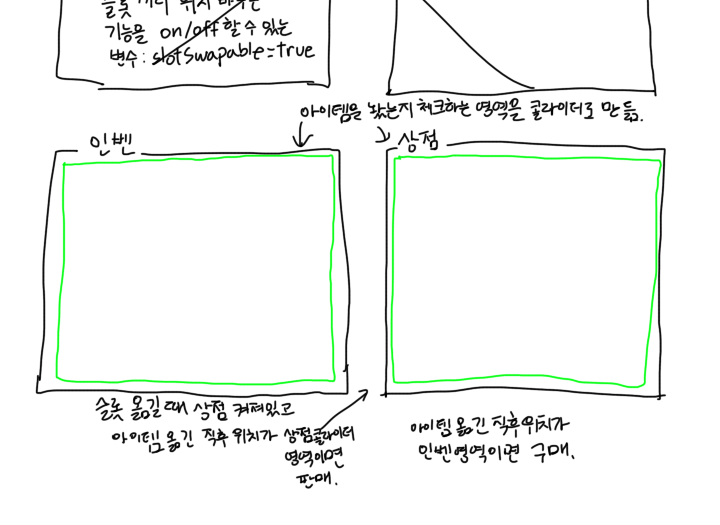 슬롯 끼리 위치 바꾸는
기능을 on/off 할 수 있는
변수 : slotSwapable=true
아이템을 놨는지 체크하는 영역을 콜라이더로 만듦.
인벤
상점
슬롯 옮길 때 상점 켜져있고
아이템 옮긴 직후 위치가 상점콜라이더
영역이면
판매.
아이템 옮긴 직후위치가
인벤영역이면 구매.